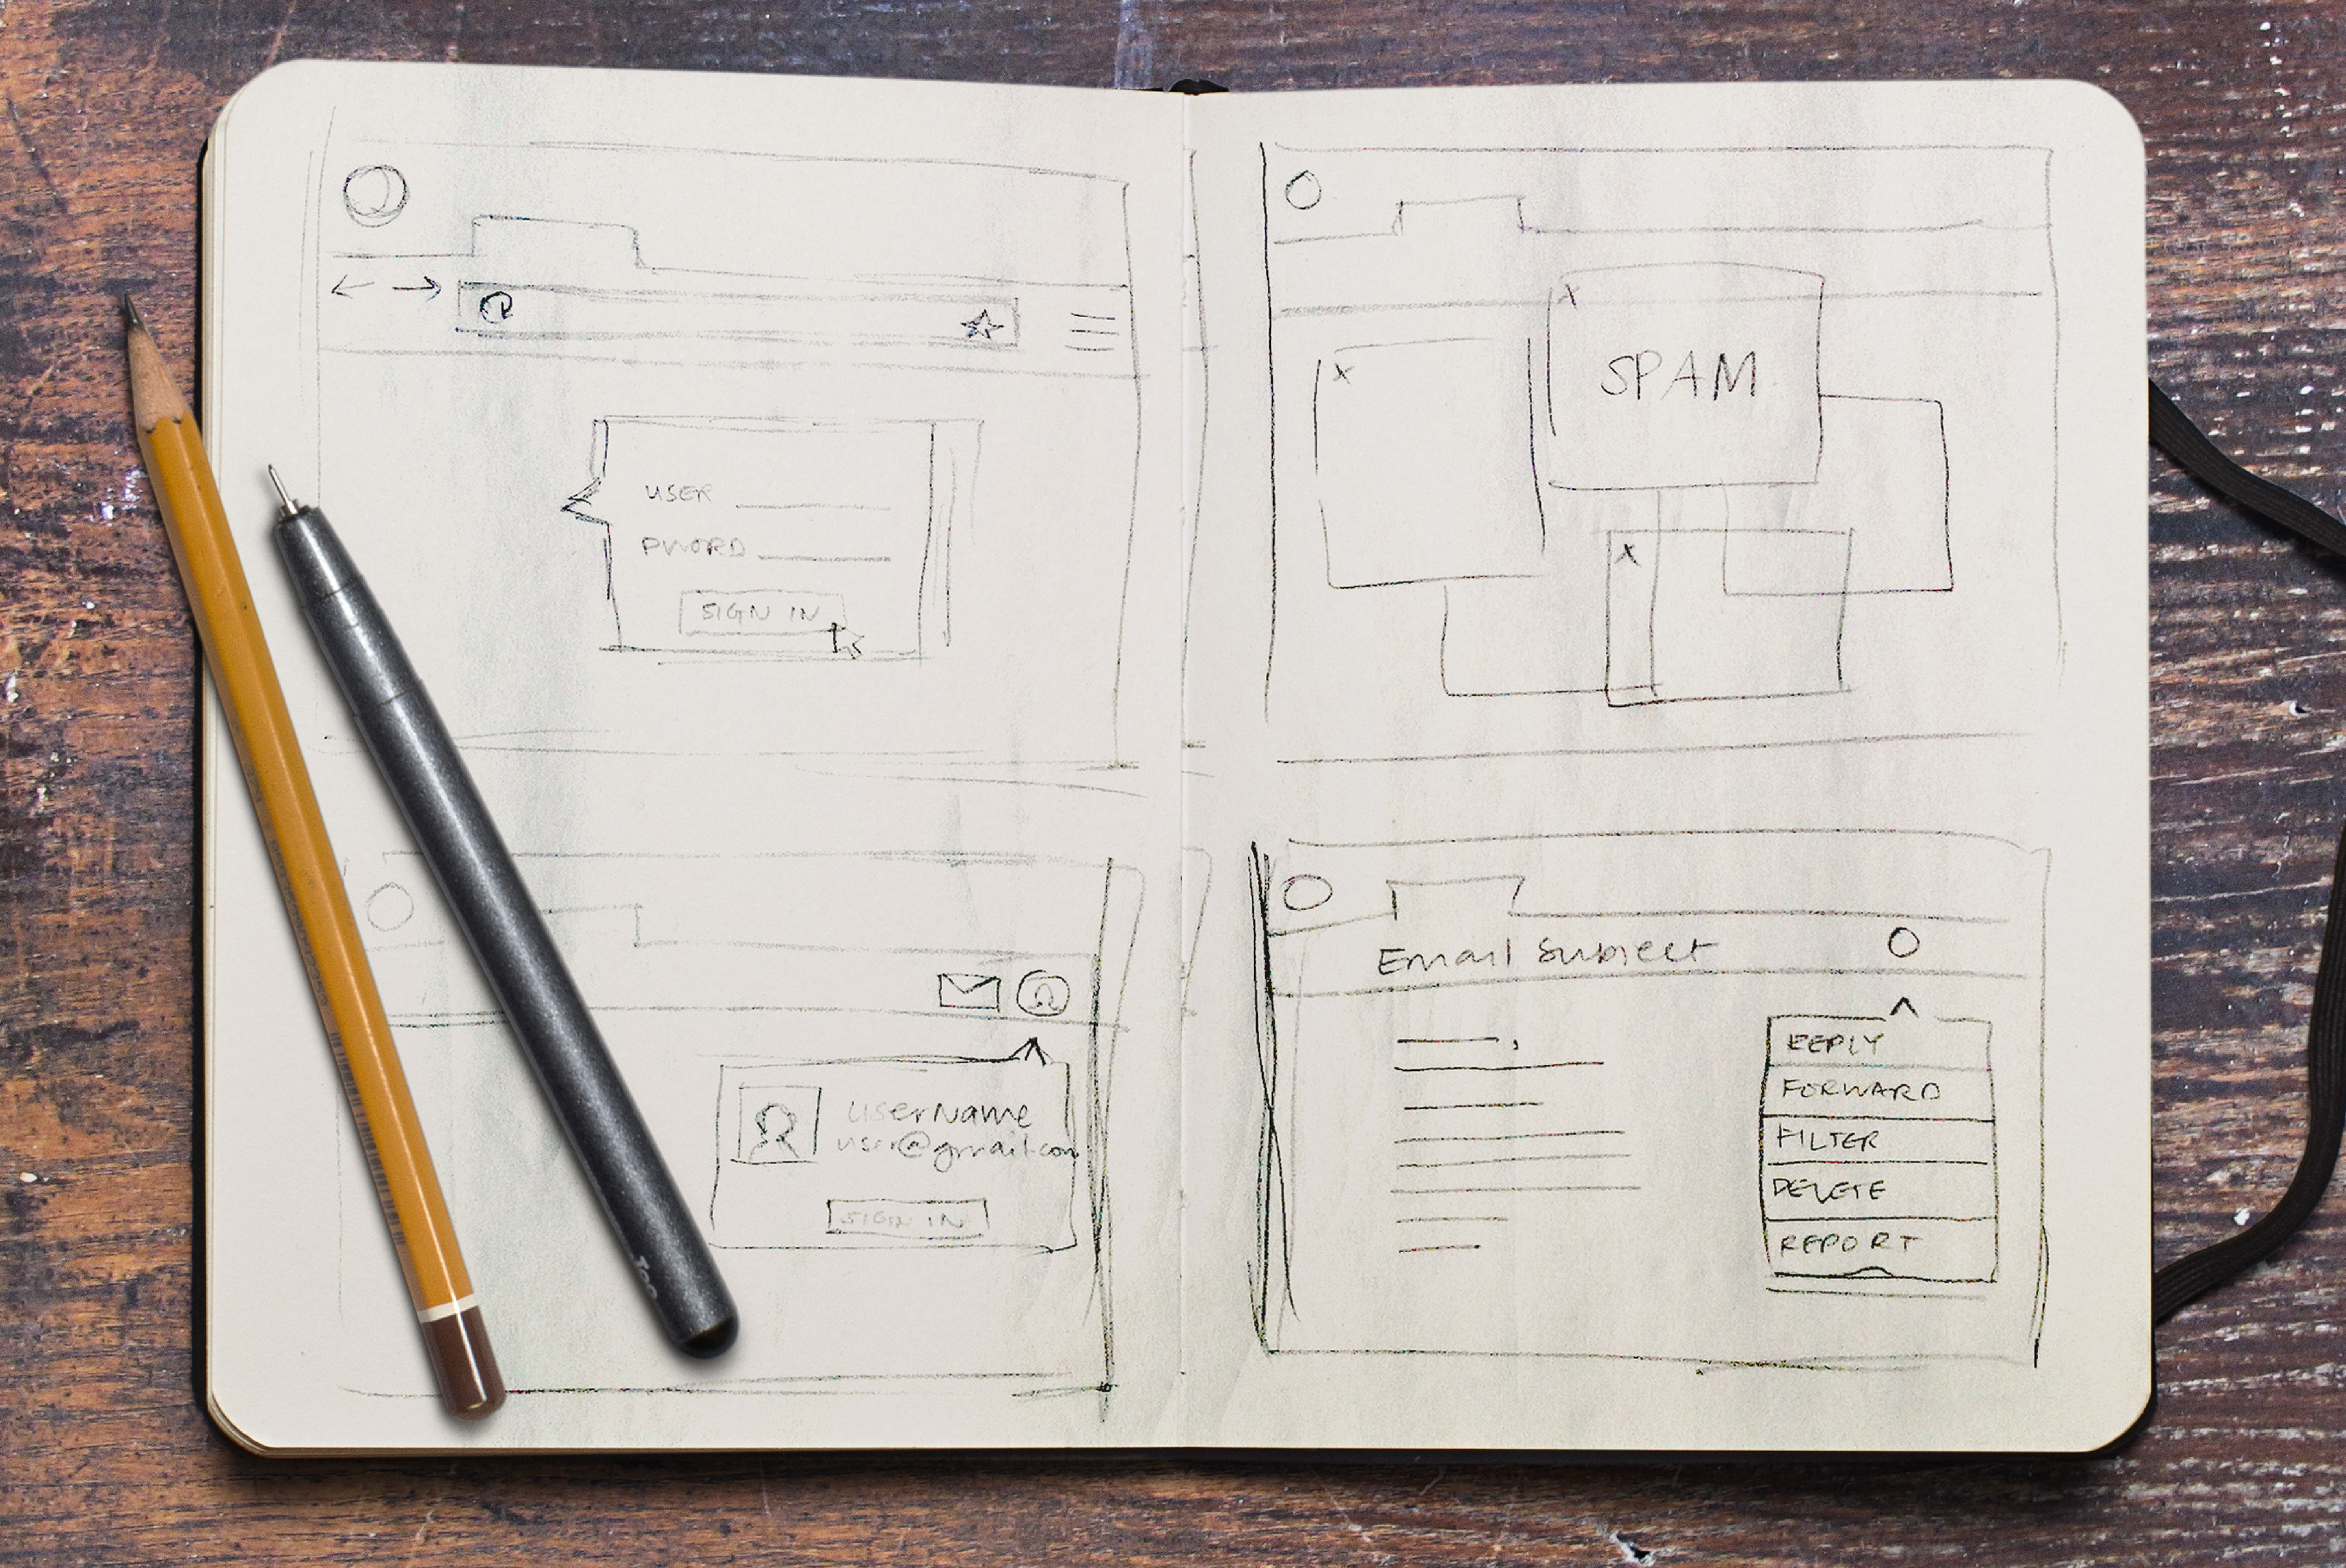 USER
PWORD
SIGN IN
SPAM
username
user@gmail.com
SIGN IN
Email Subject
REPLY
FORWARD
FILTER
DELETE
REPORT